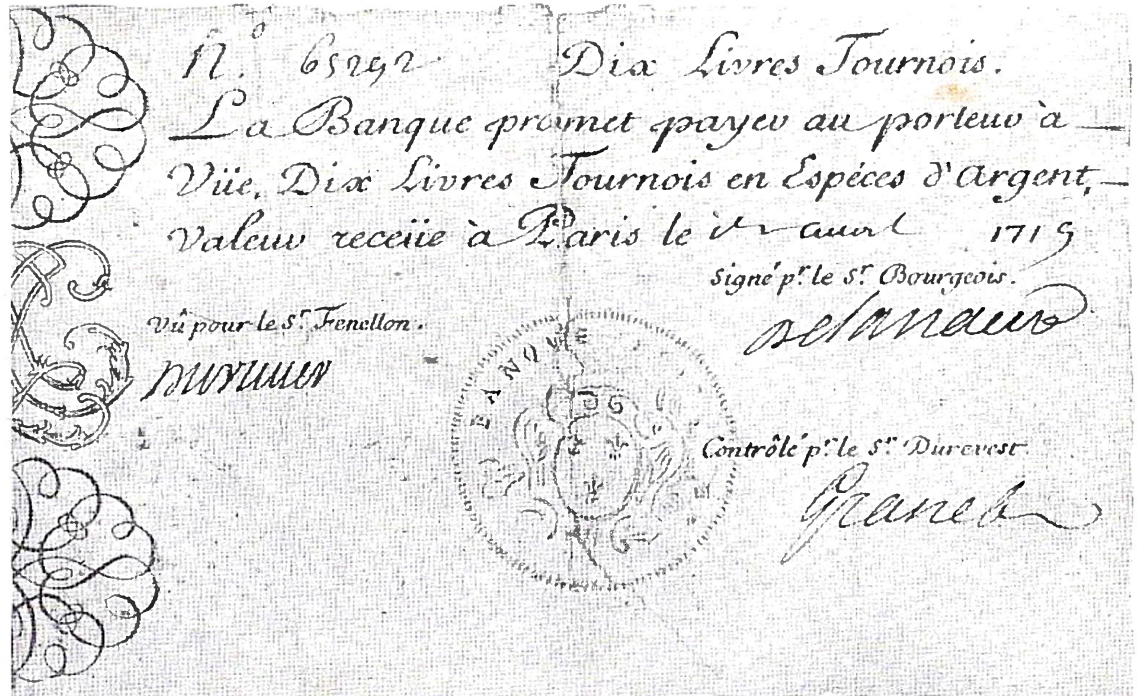 N.º 65292 Dix Livres Tournois.
La Banque promet payer au porteur à
Vüe, Dix Livres Tournois en Espéces d'Argent,
valeur receüe à Paris le 1er avril 1719
Signé pr. le Sr. Bourgeois.
Vû pour le Sr. Fenellon.
BANQVE
Contrôlé pr. le Sr. Durevest.
Granet